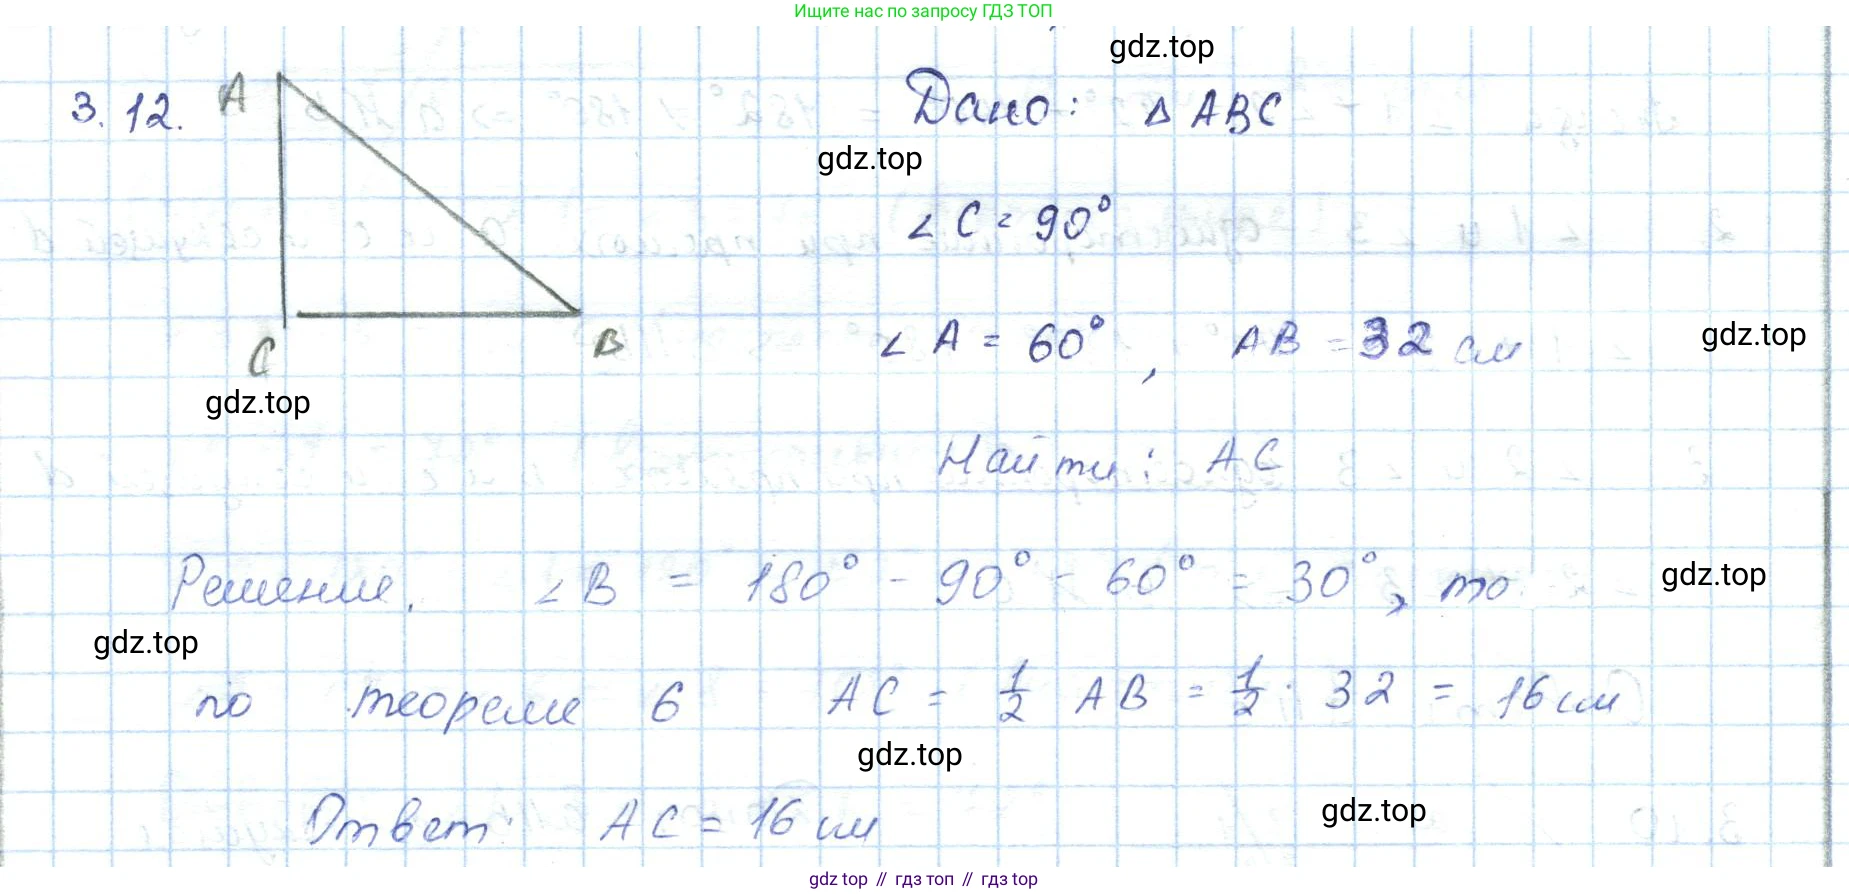 Ищите нас по запросу ГДЗ ТОП
gdz.top
3.12. A Дано: △ ABC
gdz.top
∠ C = 90°
∠ A = 60°, AB = 32 см
gdz.top
C B
gdz.top
Найти: AC
Решение. ∠ B = 180° - 90° - 60° = 30°, то
gdz.top
gdz.top
по теореме 6 AC = 1/2 AB = 1/2 · 32 = 16 см
gdz.top
Ответ: AC = 16 см
gdz.top
gdz top // гдз топ // gdz top